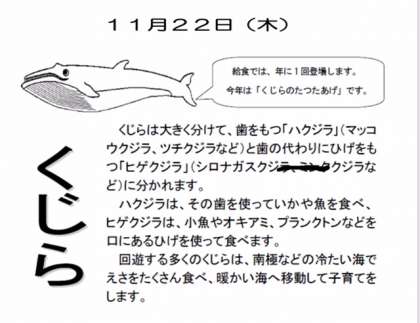 11月22日（木）
給食では、年に1回登場します。
今年は「くじらのたつたあげ」です。
くじら
くじらは大きく分けて、歯をもつ「ハクジラ」（マッコ
ウクジラ、ツチクジラなど）と歯の代わりにひげをも
つ「ヒゲクジラ」（シロナガスクジラ、ミンククジラな
ど）に分かれます。
ハクジラは、その歯を使っていかや魚を食べ、
ヒゲクジラは、小魚やオキアミ、プランクトンなどを
口にあるひげを使って食べます。
回遊する多くのくじらは、南極などの冷たい海で
えさをたくさん食べ、暖かい海へ移動して子育てを
します。